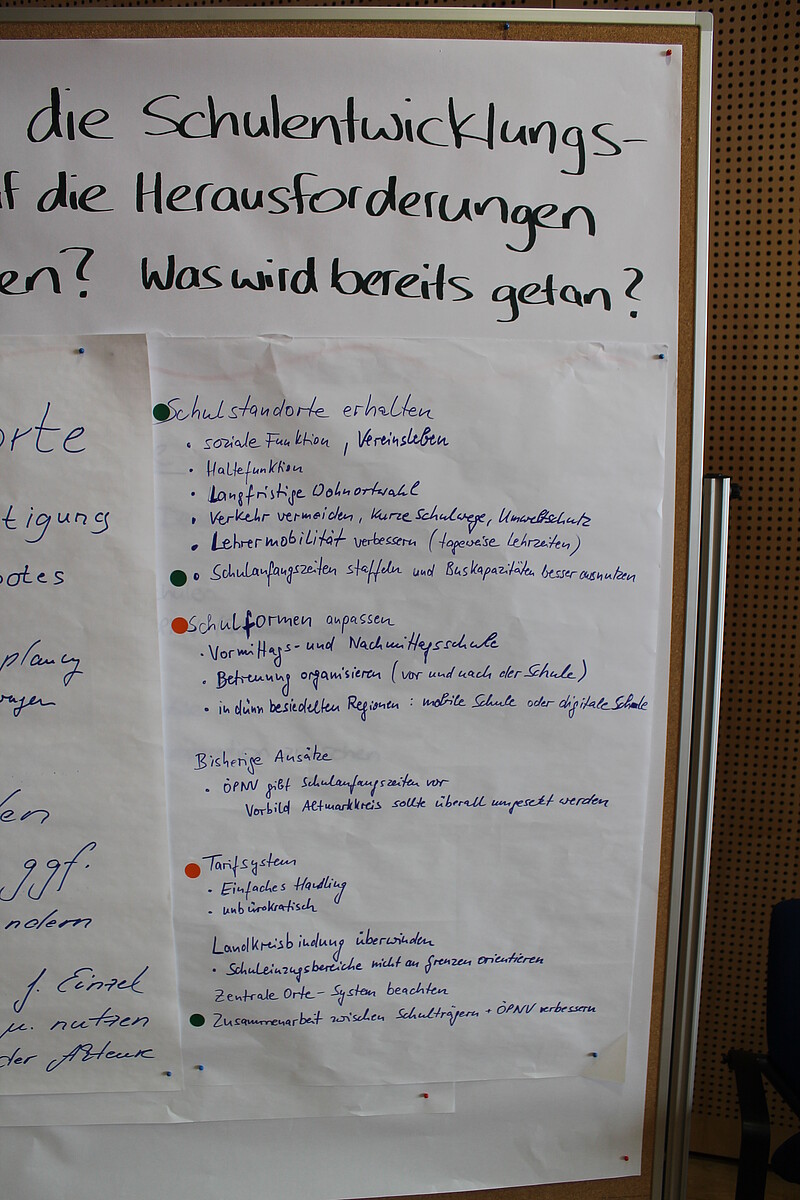 die Schulentwicklungs-
f die Herausforderungen
en? Was wird bereits getan?
orte
tigung
otes
planung
ungen
en
ggf.
ndern
f. Einzel
u. nutzen
der Akteure
Schulstandorte erhalten
• soziale Funktion, Vereinsleben
• Haltefunktion
• Langfristige Wohnortwahl
• Verkehr vermeiden, kurze Schulwege, Umweltschutz
• Lehrermobilität verbessern (tageweise Lehrzeiten)
• Schulanfangszeiten staffeln und Buskapazitäten besser ausnutzen
Schulformen anpassen
• Vormittags- und Nachmittagsschule
• Betreuung organisieren (vor und nach der Schule)
• in dünn besiedelten Regionen: mobile Schule oder digitale Schule
Bisherige Ansätze
• ÖPNV gibt Schulanfangszeiten vor
Vorbild Altmarkkreis sollte überall umgesetzt werden
Tarifsystem
• Einfaches Handling
• unbürokratisch
Landkreisbindung überwinden
• Schuleinzugsbereiche nicht an Grenzen orientieren
Zentrale Orte-System beachten
Zusammenarbeit zwischen Schulträgern + ÖPNV verbessern